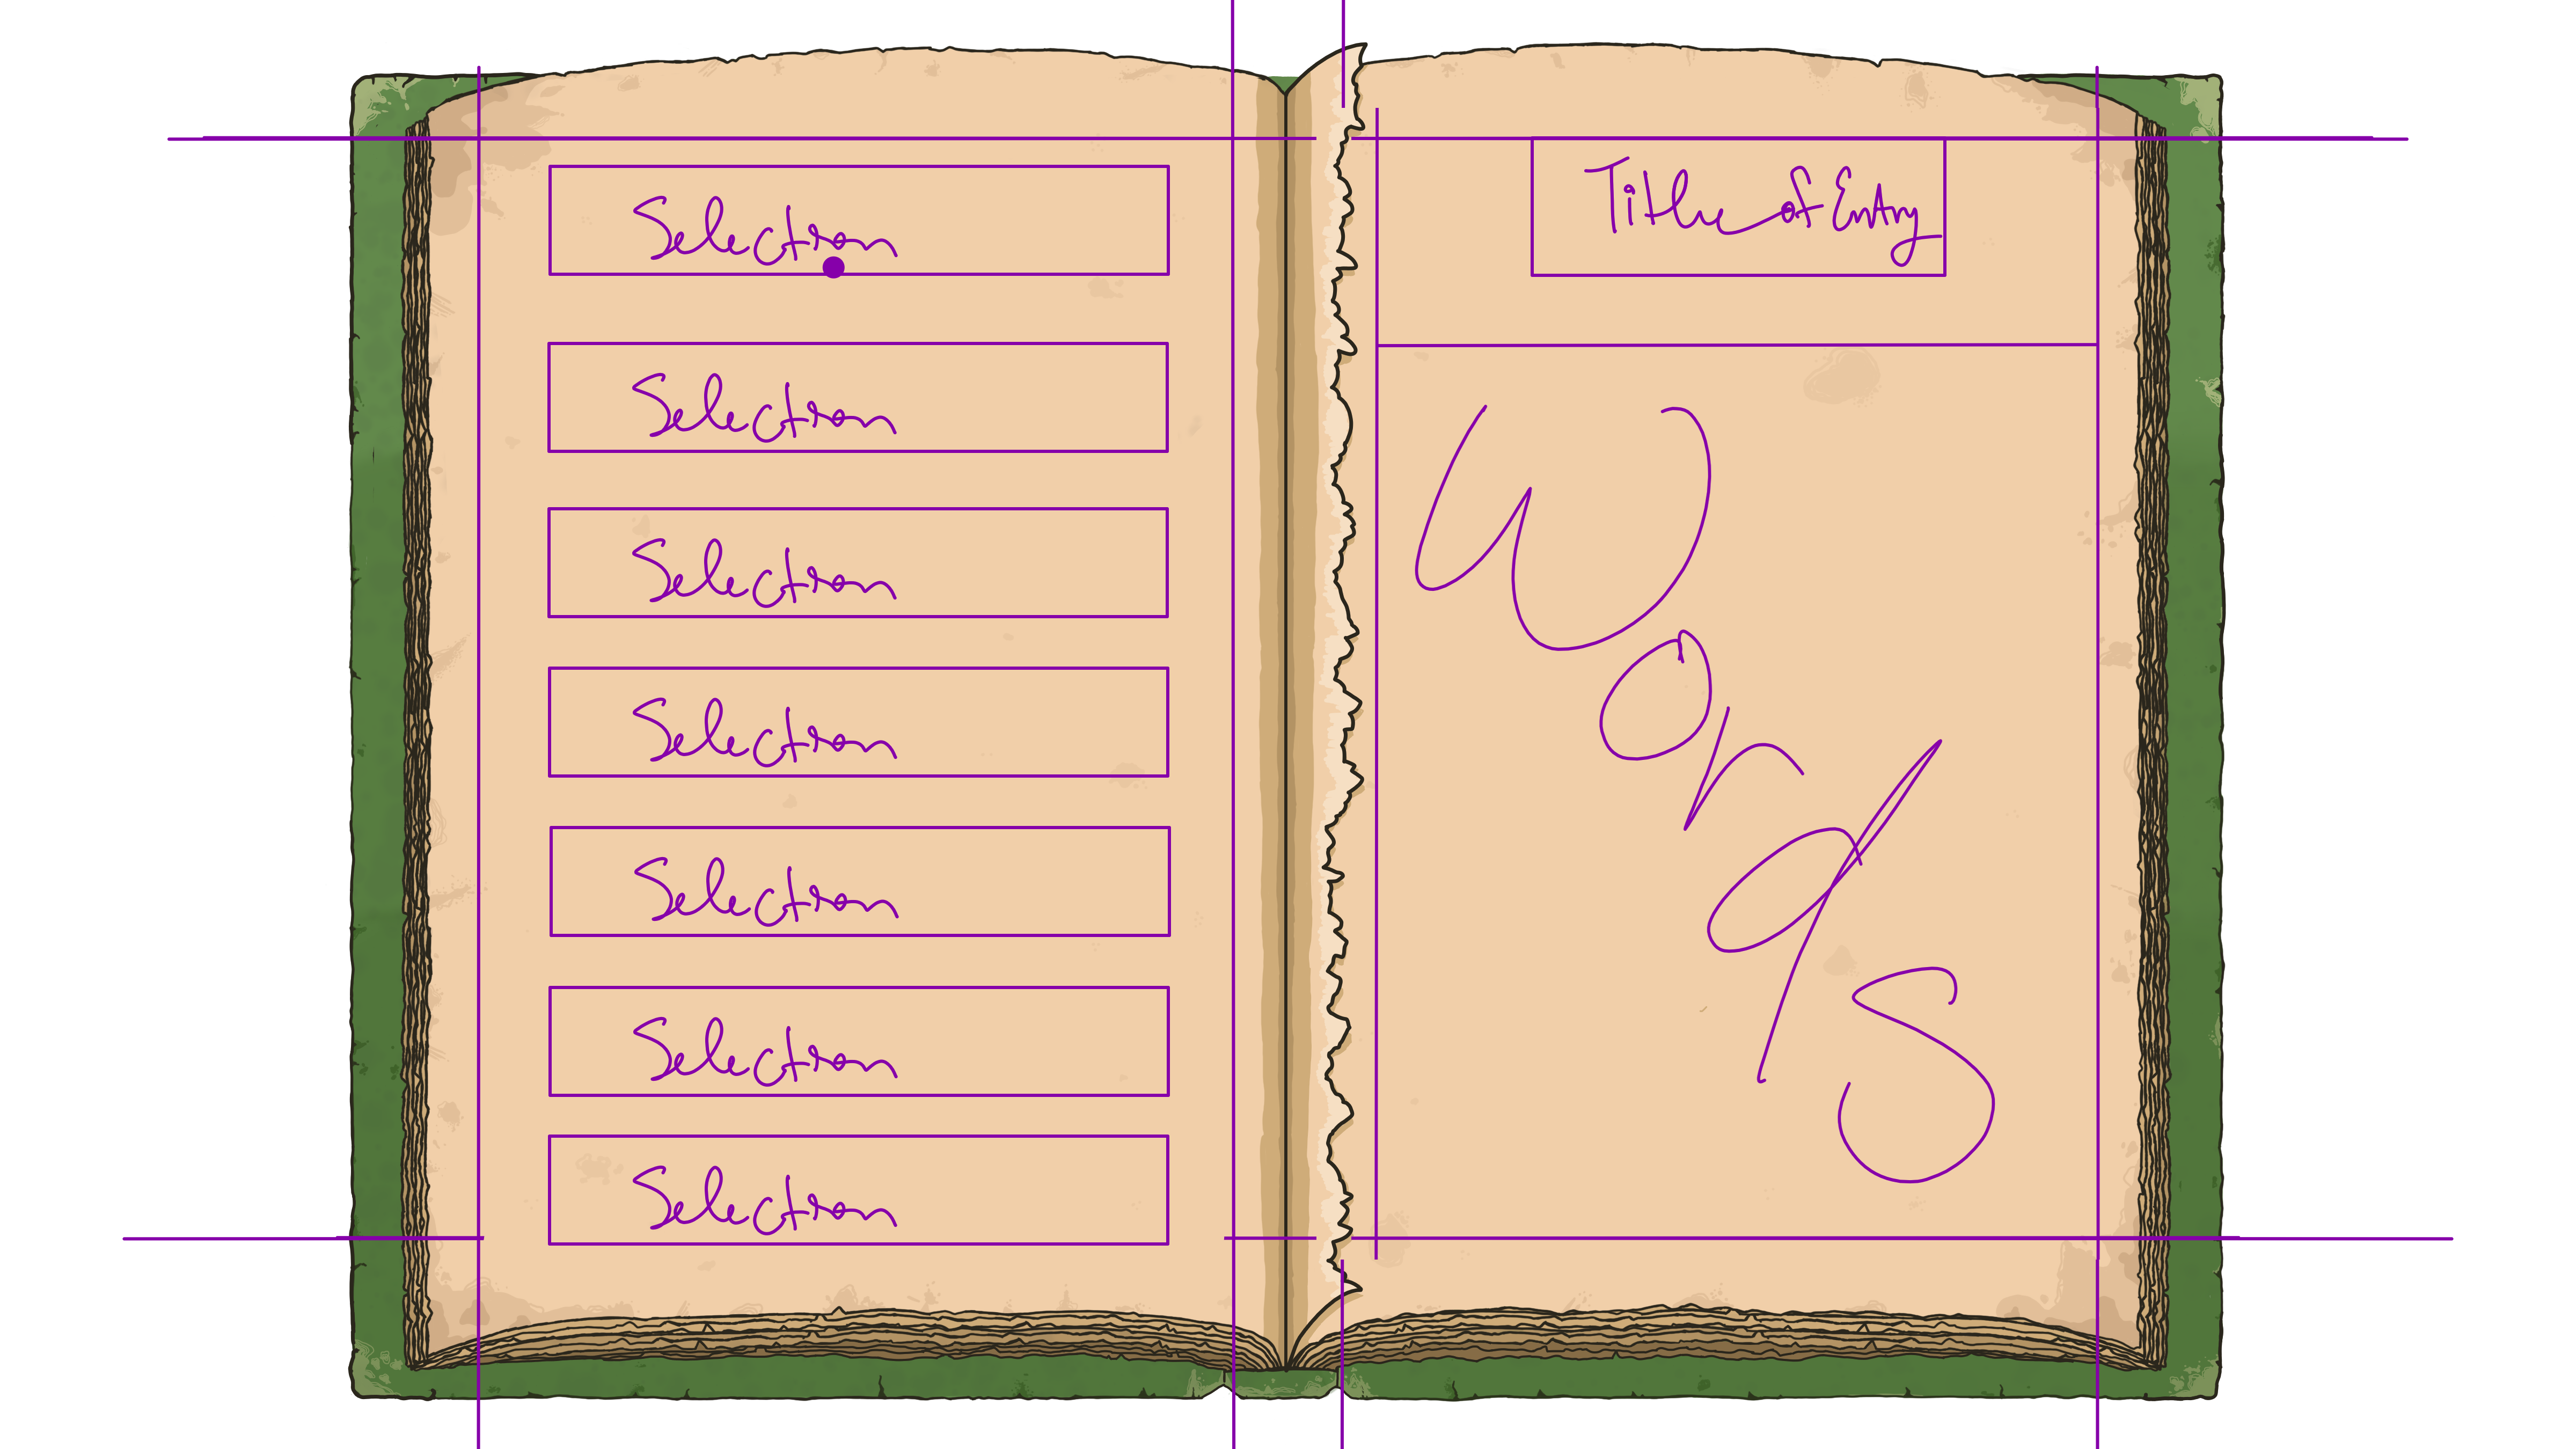 Selection
Selection
Selection
Selection
Selection
Selection
Selection
Title of Entry
Words